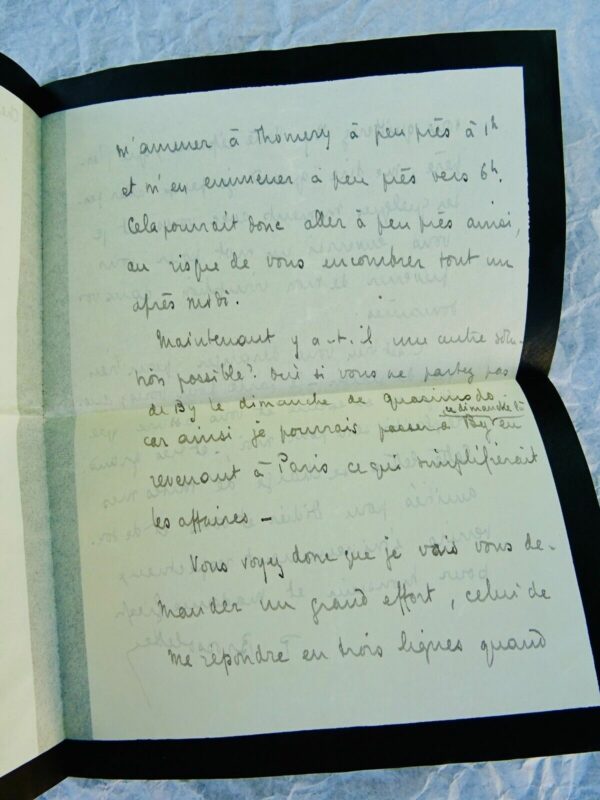 m'amener à Thomery à peu près à 1h
et m'en emmener à peu près vers 6h.
Cela pourrait donc aller à peu près ainsi,
au risque de vous encombrer tout un
après midi.
Maintenant y a-t-il une autre solu-
tion possible? Oui si vous ne partez pas
de By le dimanche de Quasimodo
ce dimanche là
car ainsi je pourrais passer à By en
revenant à Paris ce qui simplifierait
les affaires –
Vous voyez donc que je vais vous de-
mander un grand effort, celui de
me répondre en trois lignes quand